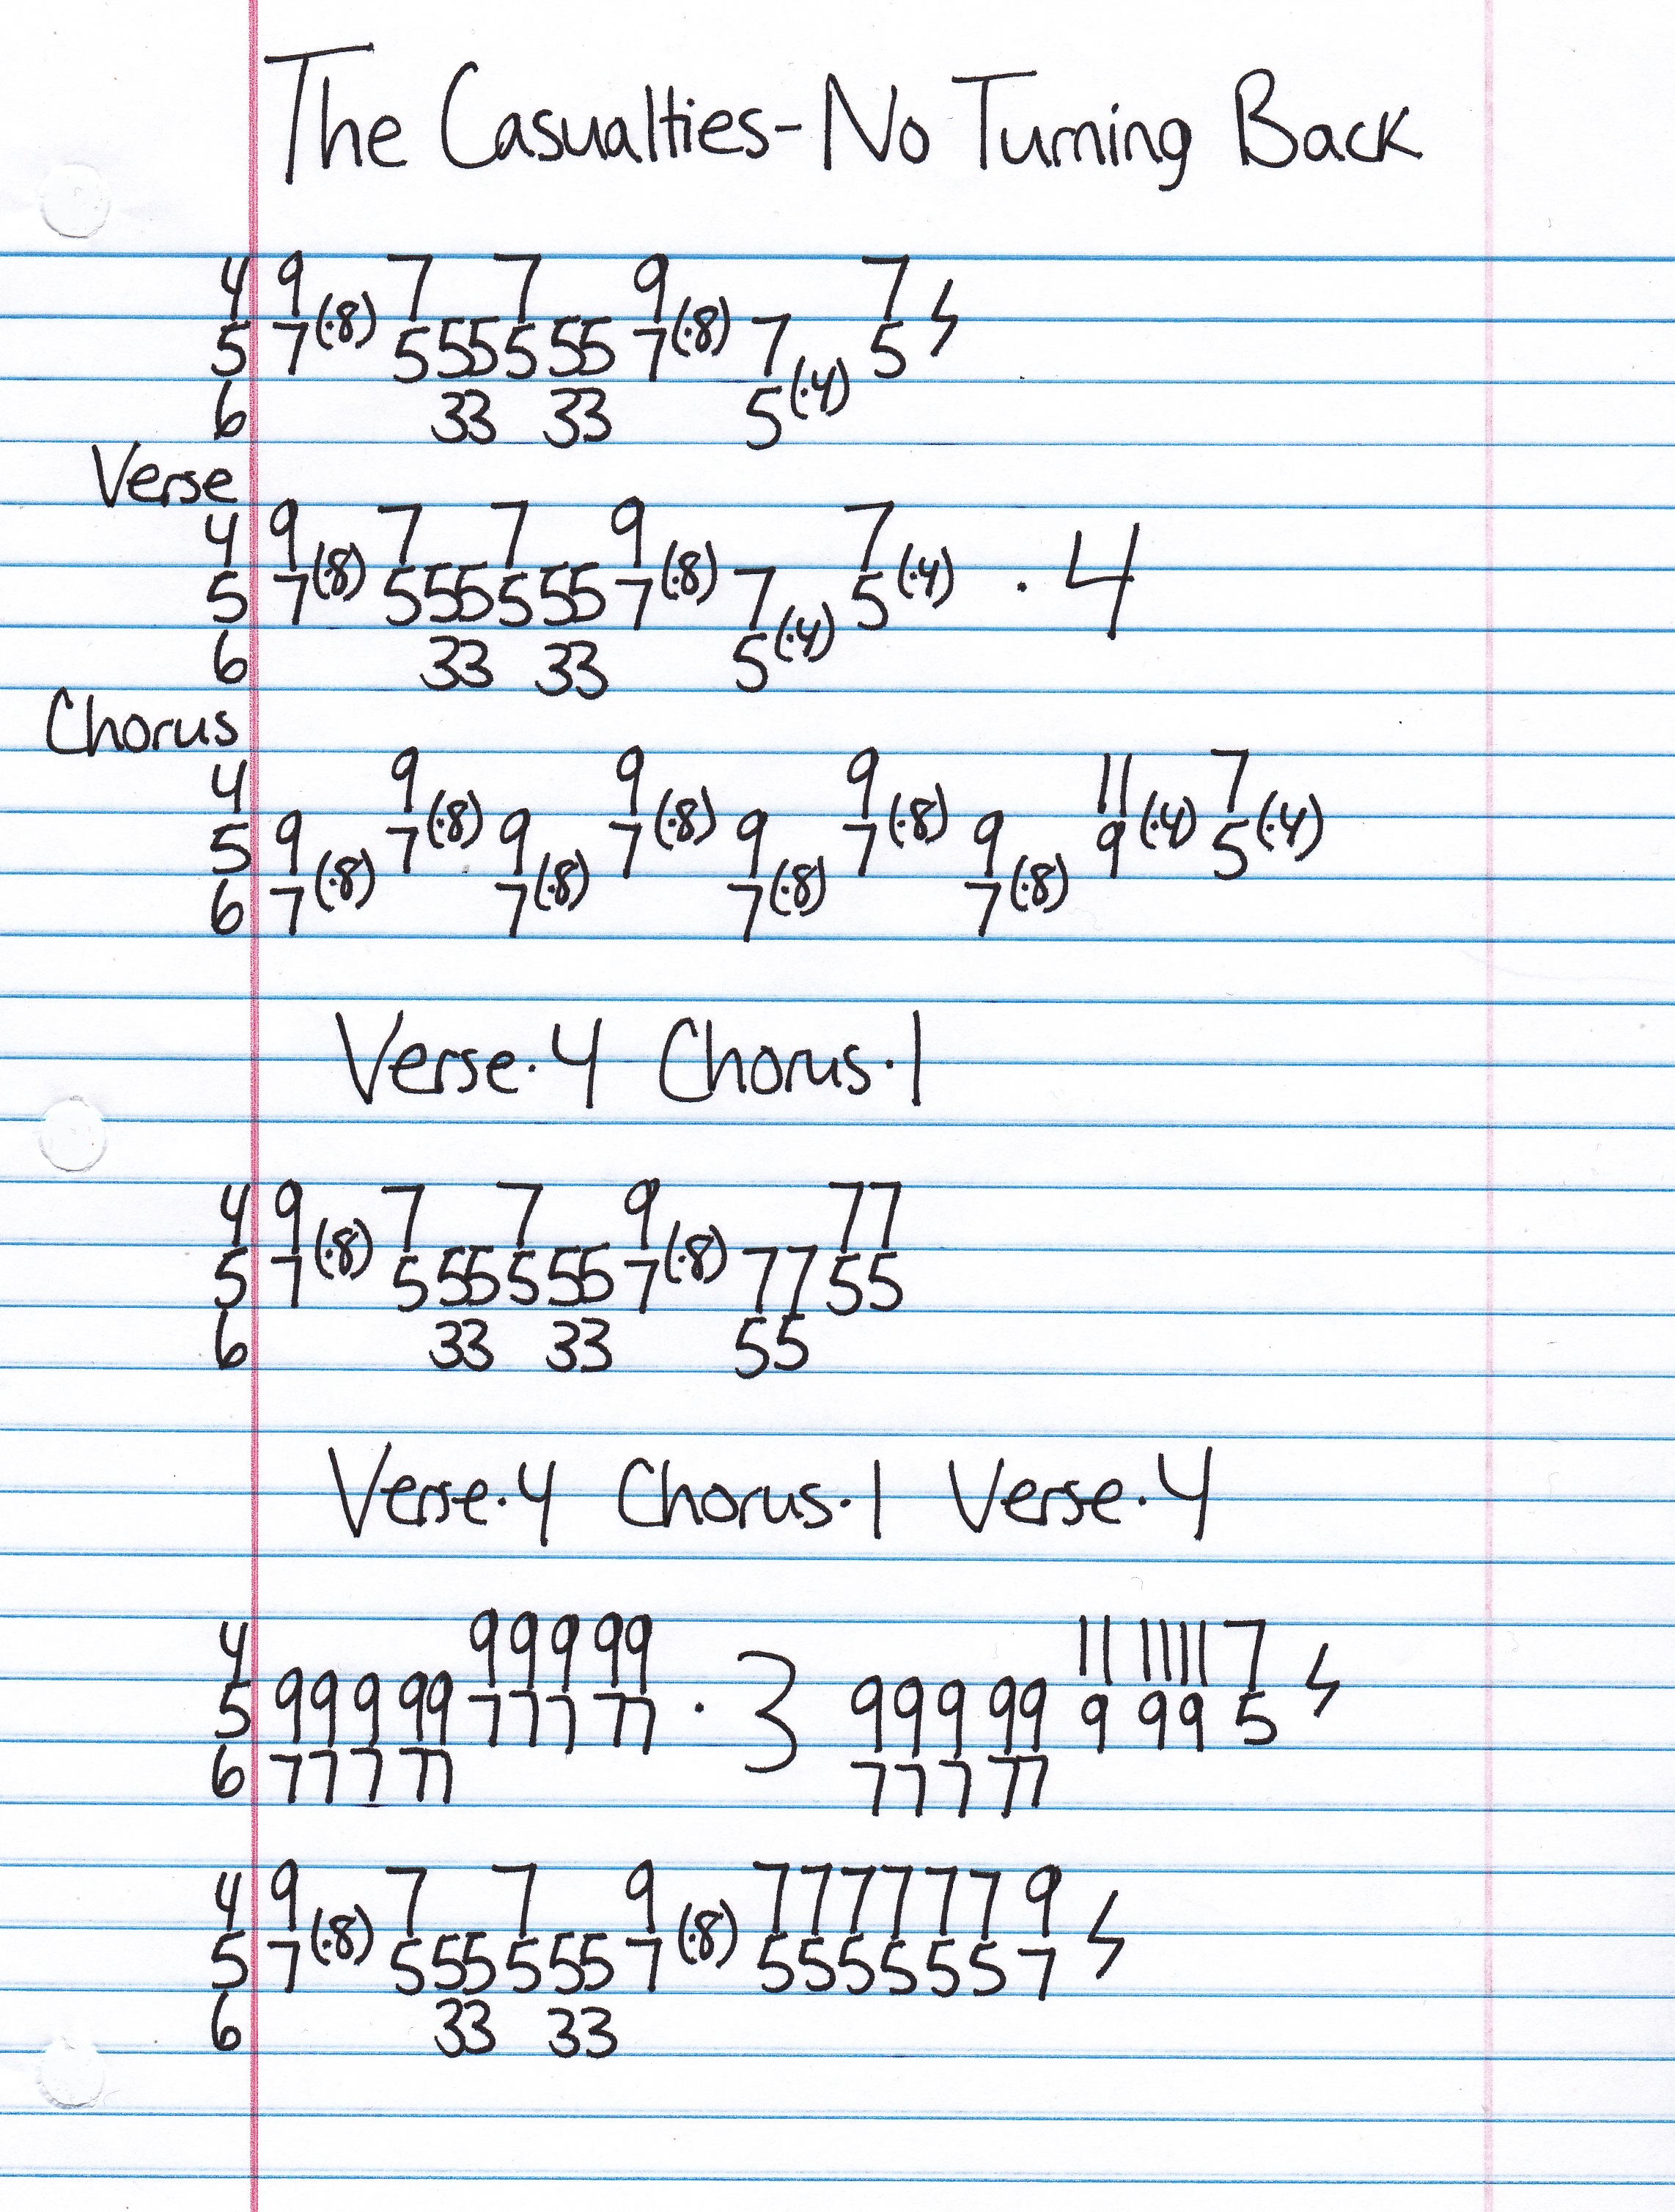 The Casualties-No Turning Back
4 9 7 7 9 7
5 7(·8) 5 55 5 55 7(·8) 7 5 ϟ
6 33 33 5(·4)
Verse
4 9 7 7 9 7
5 7(·8) 5 55 5 55 7(·8) 7 5(·4) · 4
6 33 33 5(·4)
Chorus
4 9 9 9 11 7
5 9 7(·8) 9 7(·8) 9 7(·8) 9 9(·4) 5(·4)
6 7(·8) 7(·8) 7(·8) 7(·8)
Verse·4 Chorus·1
4 9 7 7 9 77
5 7(·8) 5 55 5 55 7(·8) 77 55
6 33 33 55
Verse·4 Chorus·1 Verse·4
4 99 9 99 11 11 11 7
5 99 9 99 77 7 77 · 3 99 9 99 9 99 5 ϟ
6 77 7 77 77 7 77
4 9 7 7 9 777777 9
5 7(·8) 5 55 5 55 7(·8) 555555 7 ϟ
6 33 33